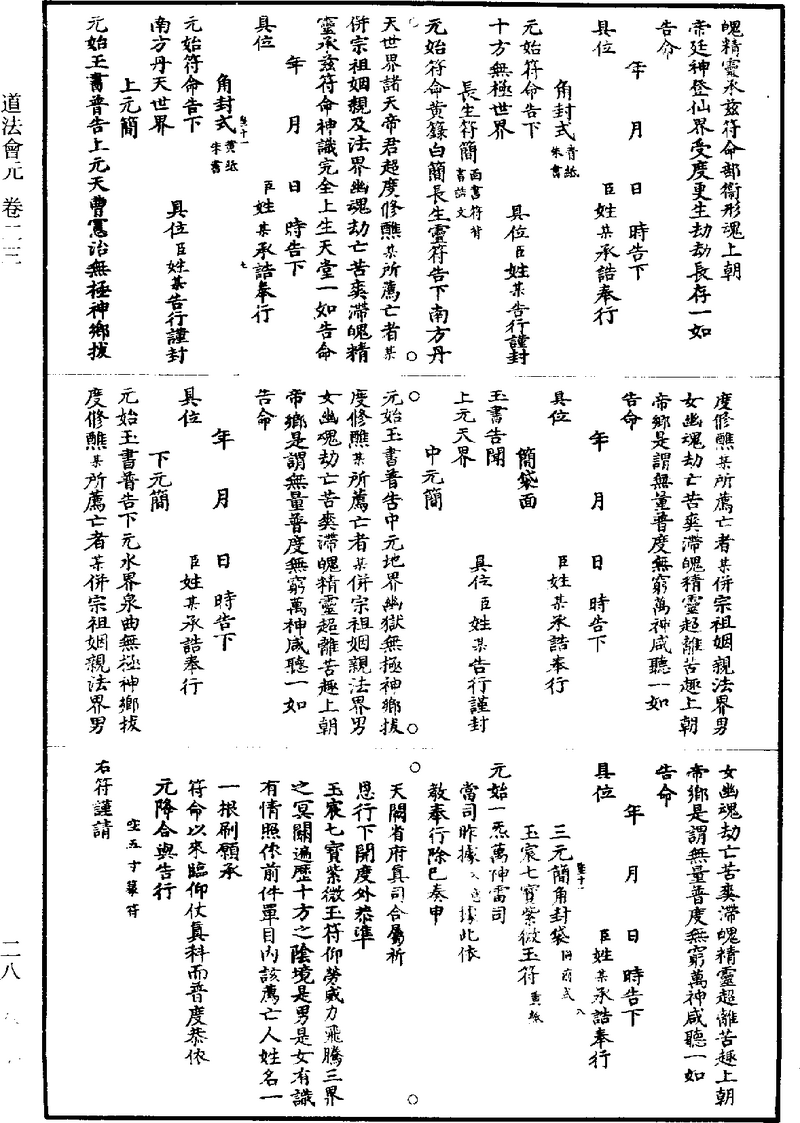 魄精靈承兹符命部衛形魂上朝
帝廷神登仙界受度更生劫劫長存一如
告命
年　月　日　時告下
具位　臣姓某承誥奉行
角封式青紙朱書
元始符命告下
十方無極世界
具位臣姓某告行謹封
長生符簡面書符背書誥文
元始符命黄籙白簡長生靈符告下南方丹
天世界諸天帝君超度修醮某所薦亡者某
併宗祖姻親及法界幽魂劫亡苦爽滯魄精
靈承兹符命神識完全上生天堂一如告命
年　月　日　時告下
具位　臣姓某承誥奉行
角封式黄紙朱書
元始符命告下
南方丹天世界
具位臣姓某告行謹封
上元簡
元始玉書普告上元天曹憲治無極神鄉拔
度修醮某所薦亡者某併宗祖姻親法界男
女幽魂劫亡苦爽滯魄精靈超離苦趣上朝
帝鄉是謂無量普度無窮萬神咸聽一如
告命
年　月　日　時告下
具位　臣姓某承誥奉行
簡袋面
玉書告聞
上元天界
具位臣姓某告行謹封
中元簡
元始玉書普告中元地界幽獄無極神鄉拔
度修醮某所薦亡者某併宗祖姻親法界男
女幽魂劫亡苦爽滯魄精靈超離苦趣上朝
帝鄉是謂無量普度無窮萬神咸聽一如
告命
年　月　日　時告下
具位　臣姓某承誥奉行
下元簡
元始玉書普告下元水界泉曲無極神鄉拔
度修醮某所薦亡者某併宗祖姻親法界男
女幽魂劫亡苦爽滯魄精靈超離苦趣上朝
帝鄉是謂無量普度無窮萬神咸聽一如
告命
年　月　日　時告下
具位　臣姓某承誥奉行
三元簡角封袋同前式
玉宸七寶紫微玉符黄紙
元始一炁萬神雷司
當司昨據入意據此依
教奉行除已奏申
天闕省府真司合屬祈
恩行下開度外恭準
玉宸七寶紫微玉符仰勞威力飛騰三界
之冥關遍歷十方之陰境是男是女有識
有情照依前件單目内該薦亡人姓名一
一根刷願承
符命以來臨仰仗真科而普度恭依
元降合與告行
空五寸篆符
右符謹請
道法會元　卷二三
二八